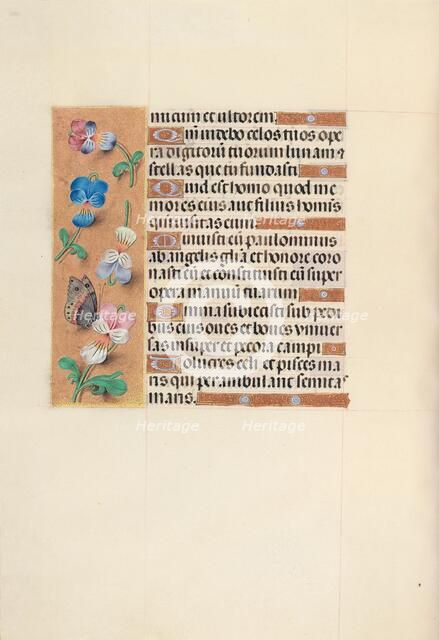 micum et ultorem.
Qm̄ videbo celos tuos ope
ra digitorū tuorum lunam ⁊
stellas que tu fundasti
Quid est homo quod me
mores eius aut filius homis
quia visitas eum.
Minuisti eū paulominus
ab angelis glīa et honore coro
nasti eū et constituisti eū super
opera manuū tuarum
Omnia subiecisti sub pedi
bus eius oues et boues vniuer
sas insuper et pecora campi
Volucres celi et pisces ma
ris qui perambulant semitas
maris.
Heritage
Heritage
Heritage
Heritage
Heritage
Heritage